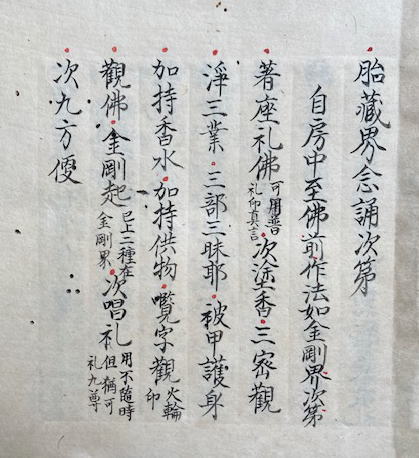 胎藏界念誦次第
自房中至佛前作法如金剛界次第
著座礼佛可用普礼印真言次塗香三密觀
淨三業三部三昧耶被甲護身
加持香水加持供物覽字觀火輪印
觀佛金剛起已上二種在金剛界次唱礼用不隨時但稱可礼九尊
次九方便